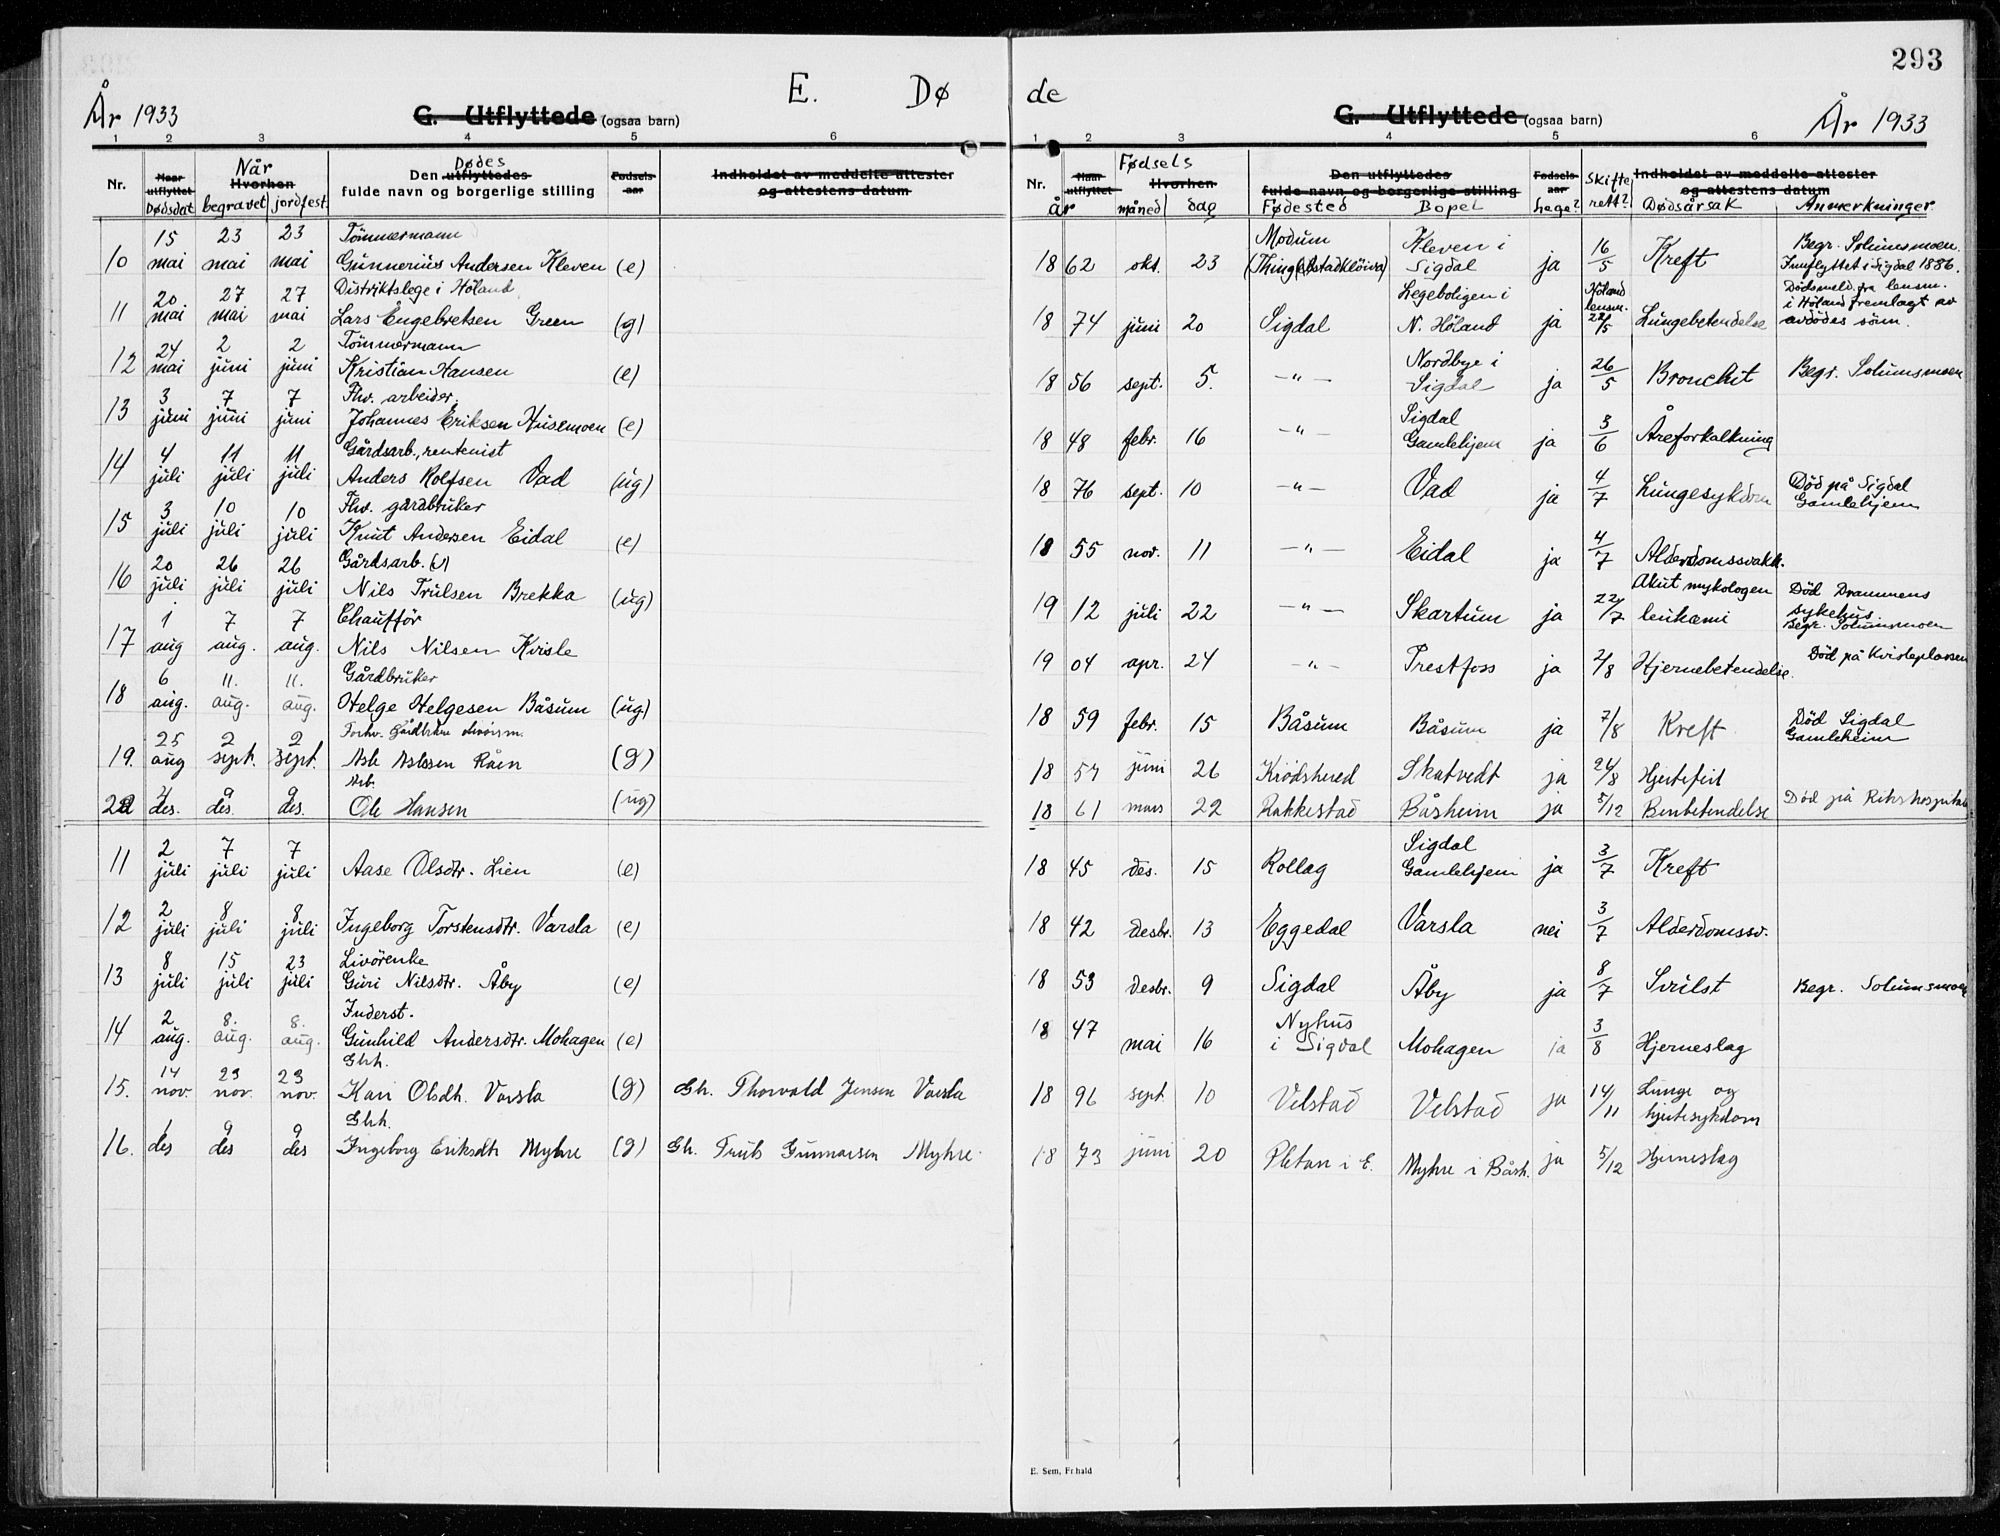 293
E. Dø de
År 1933
G. Utflyttede (ogsaa barn)
G. Utflyttede (ogsaa barn)
År 1933
1 2 3 4 5 6
1 2 3 4 5 6
Nr. Naar utflyttet Dødsdat Når Hvorhen begravet jordfest. Den utflyttedes Dødes fulde navn og borgerlige stilling Fødselsaar Indholdet av meddelte attester og attestens datum
Nr. Naar utflyttet Fødsels Hvorhen år måned dag Den utflyttedes fulde navn og borgerlige stilling Fødested Bopel Fødselsaar Lege? Skifterett? Indholdet av meddelte attester og attestens datum Dødsårsak Anmerkninger
10 15 mai 23 mai 23 mai Tömmermann Gunnerius Andersen Kleven (e) 1862 okt. 23 Modum Kleven i Sigdal ja 16/5 Kreft Begr. Solumsmoen. Innflyttet i Sigdal 1886.
11 20 mai 27 mai 27 mai Distriktslege i Höland Lars Engebretsen Green (g) 1874 juni 20 Sigdal Legeboligen i N. Höland ja Höland lensm. 22/5 Lungebetendelse Dödsmeld. fra lensm. i Höland fremlagt av avdödes sönn.
12 24 mai 2 juni 2 juni Tömmermann Kristian Hansen (e) 1856 sept. 5. —"— Nordbye i Sigdal ja 26/5 Bronchit Begr. Solumsmoen
13 3 juni 7 juni 7 juni Fhv. arbeider, Johannes Eriksen Husemoen (e) 1848 febr. 16 —"— Sigdal Gamlehjem ja 3/6 Åreforkalkning
14 4 juli 11 juli 11 juli Gårdsarb., rentenist Anders Rolfsen Vad (ug) 1876 sept. 10 —"— Vad ja 4/7 Lungesykdom Död på Sigdal Gamlehjem
15 3 juli 10 juli 10 juli Fhv. gårdbruker Knut Andersen Eidal (e) 1855 nov. 11 —"— Eidal ja 4/7 Alderdomssvakh.
16 20 juli 26 juli 26 juli Gårdsarb. Nils Trulsen Brekka (ug) 1912 juli 22 —"— Skartum ja 22/7 Akut mykologen leukæmi Död Drammens sykehus. Begr. Solumsmoen
17 1 aug 7 aug. 7 aug. Chaufför Nils Nilsen Kvisle 1904 apr. 24 —"— Prestfoss ja 2/8 Hjernebetendelse. Död på Kvisleplassen
18 6 aug. 11. aug. 11. aug. Gårdbruker Helge Helgesen Båsum (ug) 1859 febr. 15 Båsum Båsum ja 7/8 Kreft Död Sigdal Gamleheim
19. 25 aug 2 sept. 2 sept. Forhv. Gårdbruker Asle Aslesen Råen (g) 1857 juni 26 Krödsherad Skatvedt ja 24/8 Hjertefeil
20 4 des. 9 des. 9 des. Arb. Ole Hansen (ug) 1861 mars 22 Rakkestad Båsheim ja 5/12 Benbetendelse Död på Rikshospitalet
11 2 juli 7 juli 7 juli Aase Olsdtr. Lien (e) 1845 des. 15 Rollag Sigdal Gamlehjem ja 3/7 Kreft
12 2 juli 8 juli 8 juli Ingeborg Torstensdtr. Varsla (e) 1842 desbr. 13 Eggedal Varsla nei 3/7 Alderdomssv.
13 8 juli 15 juli 23 juli Livörenke Guri Nilsdtr. Åby (e) 1853 desbr. 9 Sigdal Åby ja 8/7 Svulst Begr. Solumsmoen
14 2 aug. 8. aug. 8. aug. Inderst. Gunhild Andersdtr. Mohagen (e) 1847 mai 16 Nyhus i Sigdal Mohagen ja 3/8 Hjerneslag
15. 14 nov. 23 nov. 23 nov. Ghh. Kari Olsdtr. Varsla (g) Gh. Thorvald Jensen Varsla 1896 sept. 10 Velstad Velstad ja 14/11 Lunge og hjertesykdom
16. 1 des 9 des 9 des Ghh. Ingeborg Eriksdtr Myhre (g) Gh. Truls Gunnarsen Myhre. 1873 juni 20 Pletan i E. Myhre i Båsh. ja 5/12 Hjerneslag
E. Sem, Fr.hald